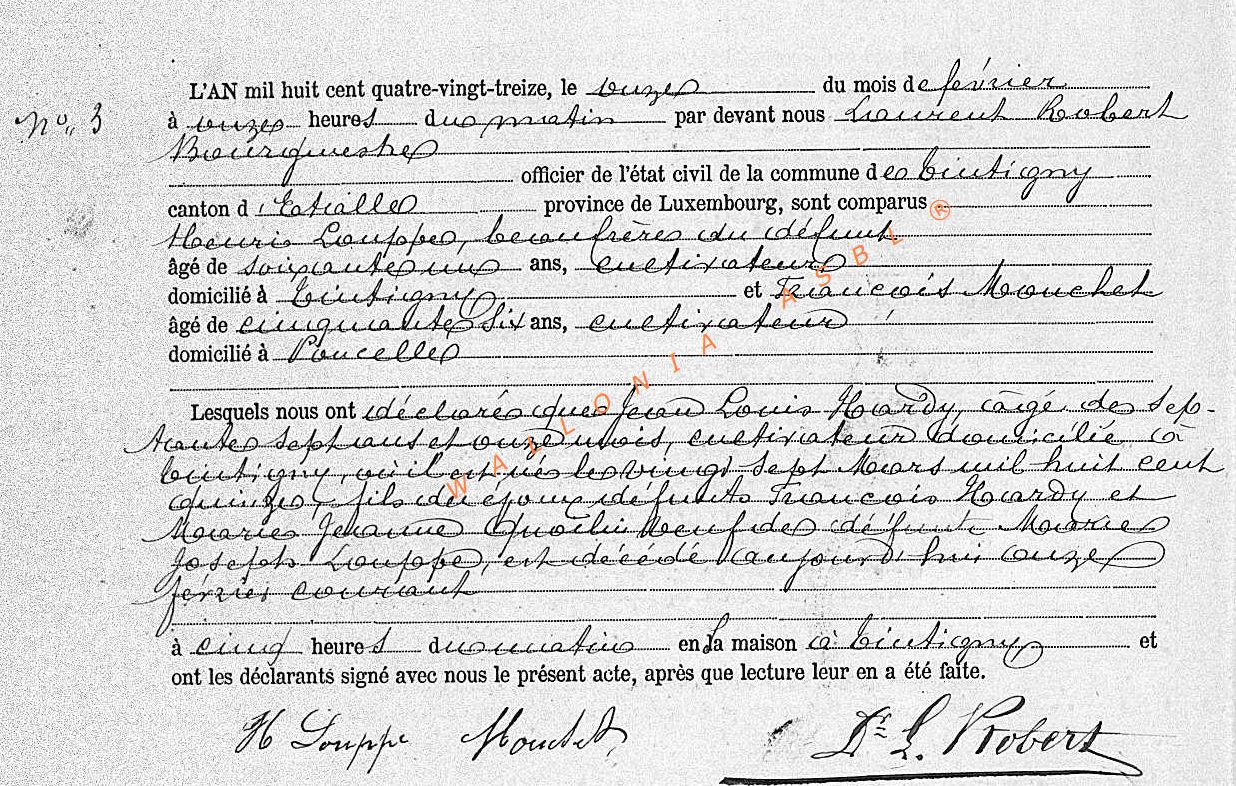 N° 3
L'AN mil huit cent quatre-vingt-treize, le onze du mois de février
à onze heures du matin par devant nous Laurent Robert
Bourgmestre
officier de l'état civil de la commune de Tintigny
canton d'Etalle province de Luxembourg, sont comparus
Henri Louppe, beaufrère du défunt
âgé de soixante un ans, cultivateur
domicilié à Tintigny et François Mouchet
âgé de cinquante six ans, cultivateur
domicilié à Poncelle
Lesquels nous ont déclaré que Jean Louis Hardy, âgé de sep-
tante sept ans et onze mois, cultivateur domicilié à
Tintigny, où il est né le vingt sept Mars mil huit cent
quinze, fils des époux défunts François Hardy et
Marie Jeanne Quoilin veuf de défunte Marie
Joseph Louppe, est décédé aujourd'hui onze
février courant
à cinq heures du matin en la maison à Tintigny et
ont les déclarants signé avec nous le présent acte, après que lecture leur en a été faite.
H Louppe Mouchet Dr L. Robert
WALLONIA ASBL ®